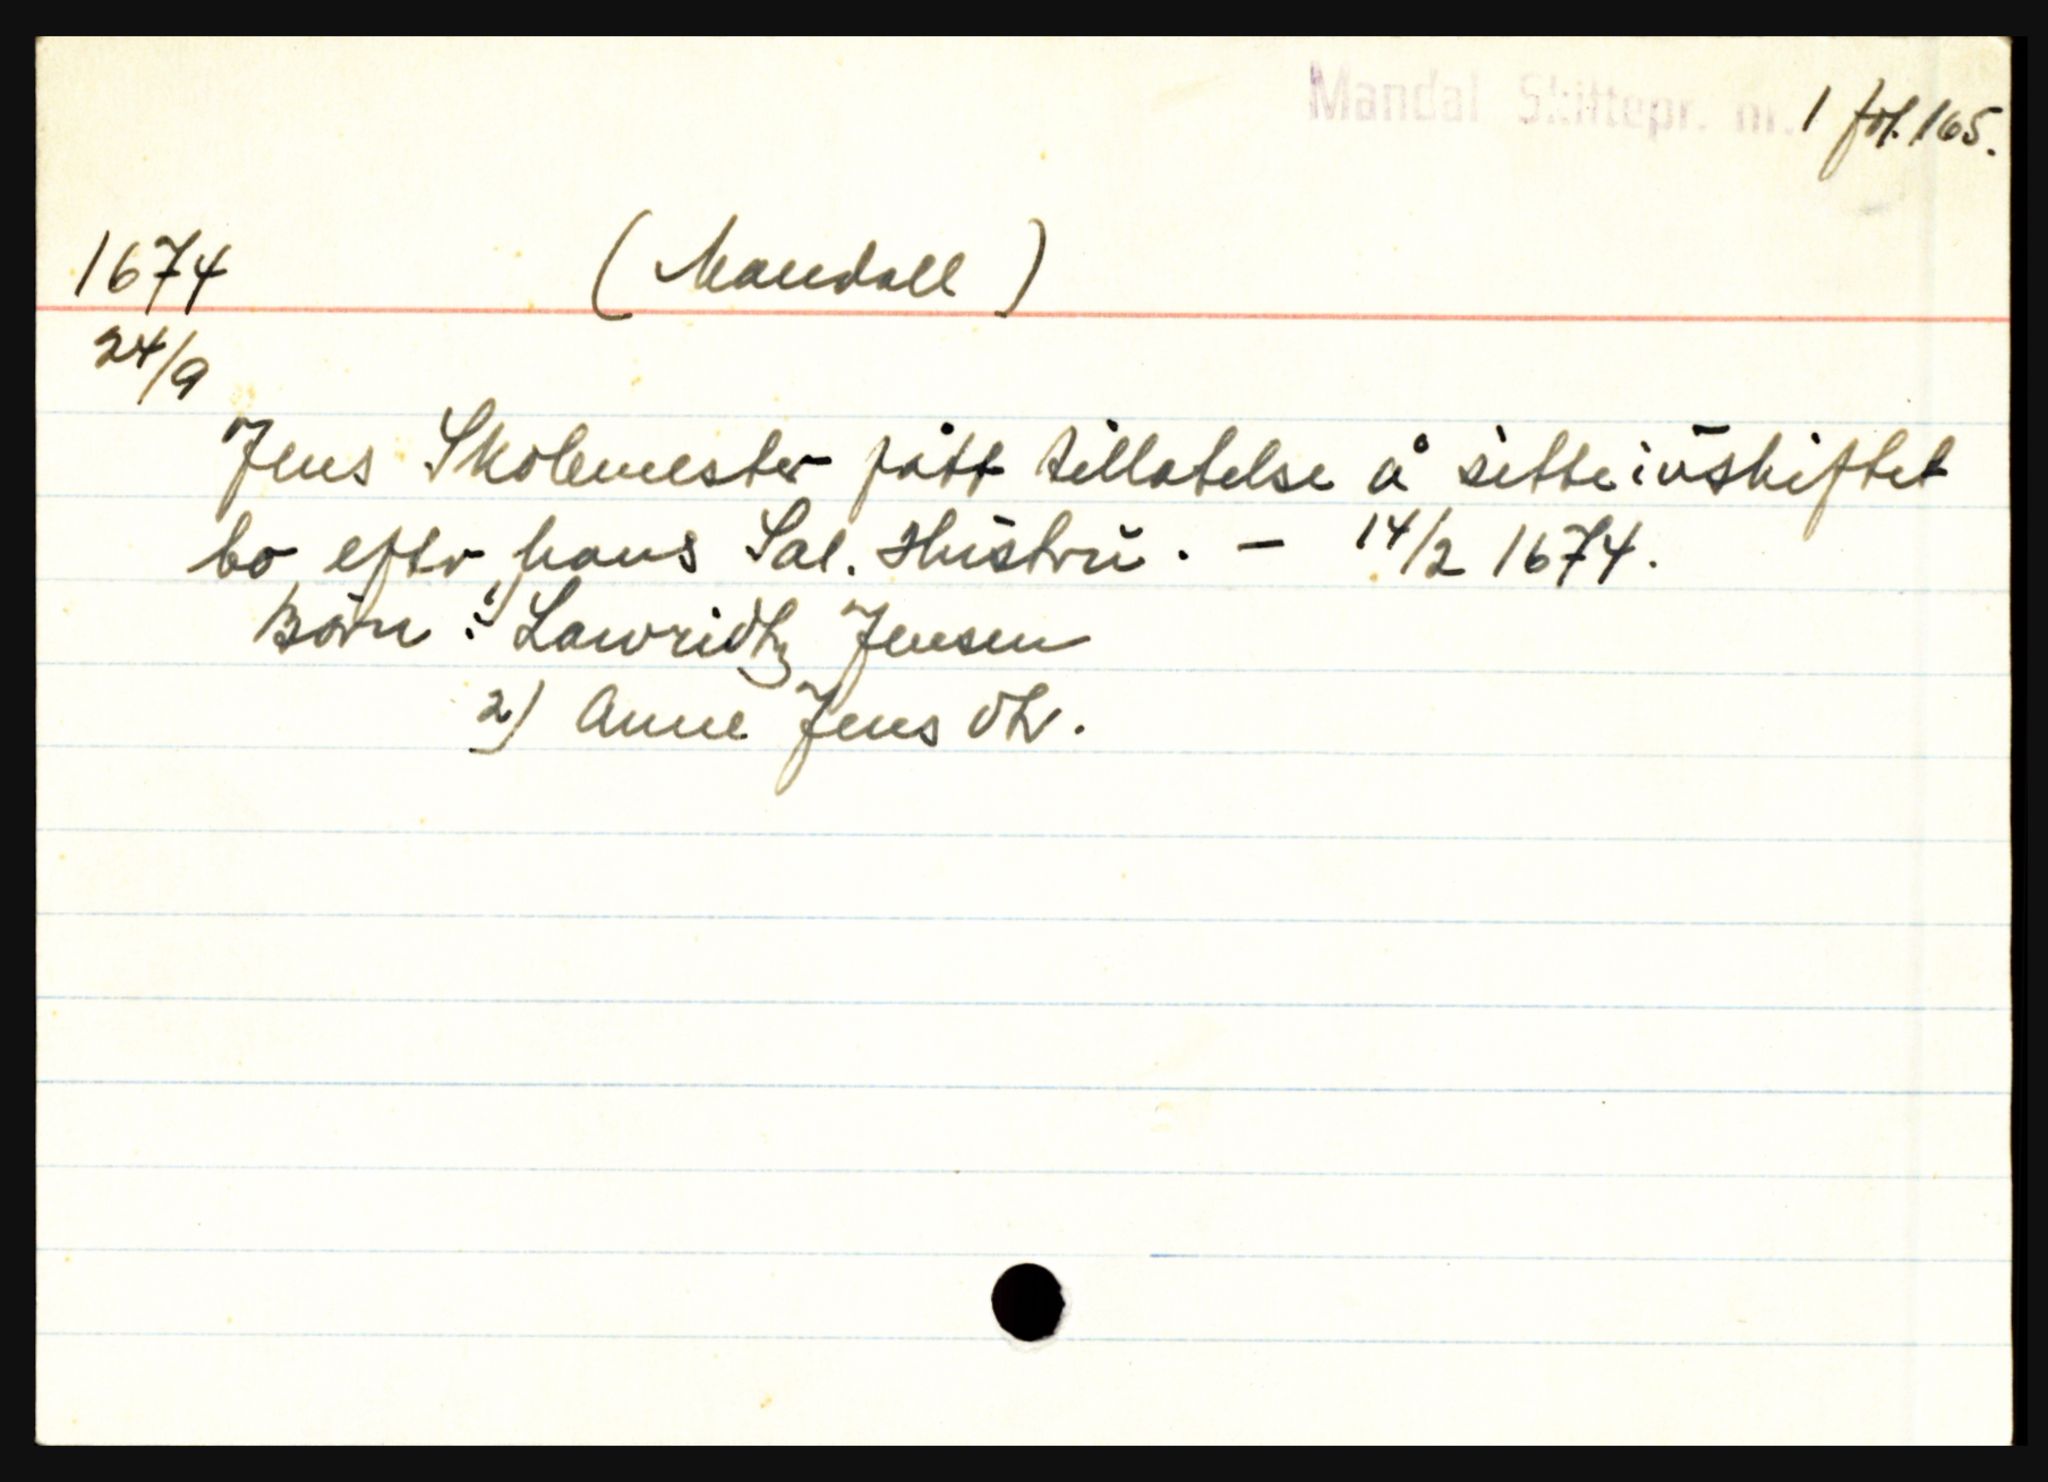 Mandal Skiftepr. nr. 1 fol. 165.
1674 (Mandall)
24/9
Jens Skolemester fått tillatelse å sitte i uskiftet
bo efter hans Sal. Hustru. - 14/2 1674.
Börn: 1) Lawridtz Jensen
2) Anne Jens dtr.